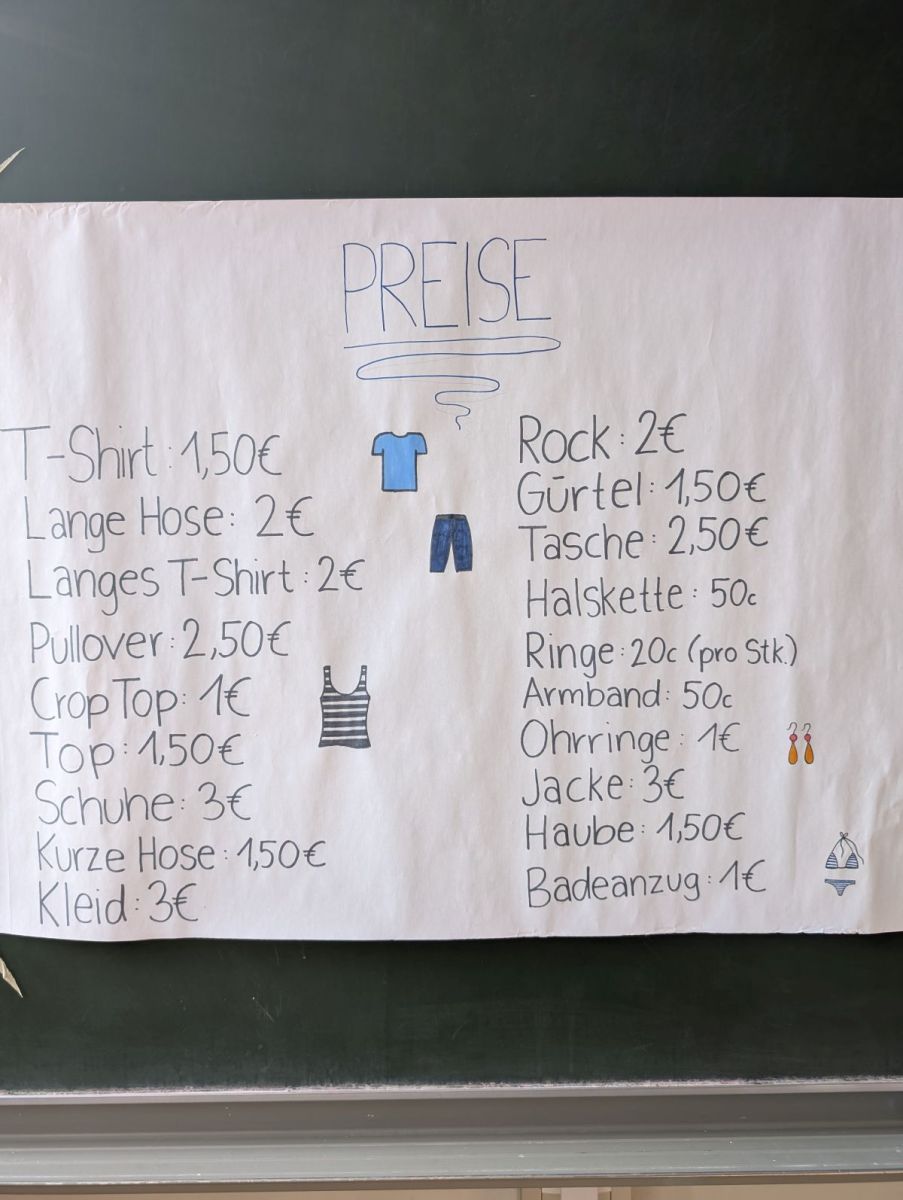 PREISE
T-Shirt: 1,50€
Lange Hose: 2€
Langes T-Shirt: 2€
Pullover: 2,50€
Crop Top: 1€
Top: 1,50€
Schuhe: 3€
Kurze Hose: 1,50€
Kleid: 3€
Rock: 2€
Gürtel: 1,50€
Tasche: 2,50€
Halskette: 50c
Ringe: 20c (pro Stk.)
Armband: 50c
Ohrringe: 1€
Jacke: 3€
Haube: 1,50€
Badeanzug: 1€